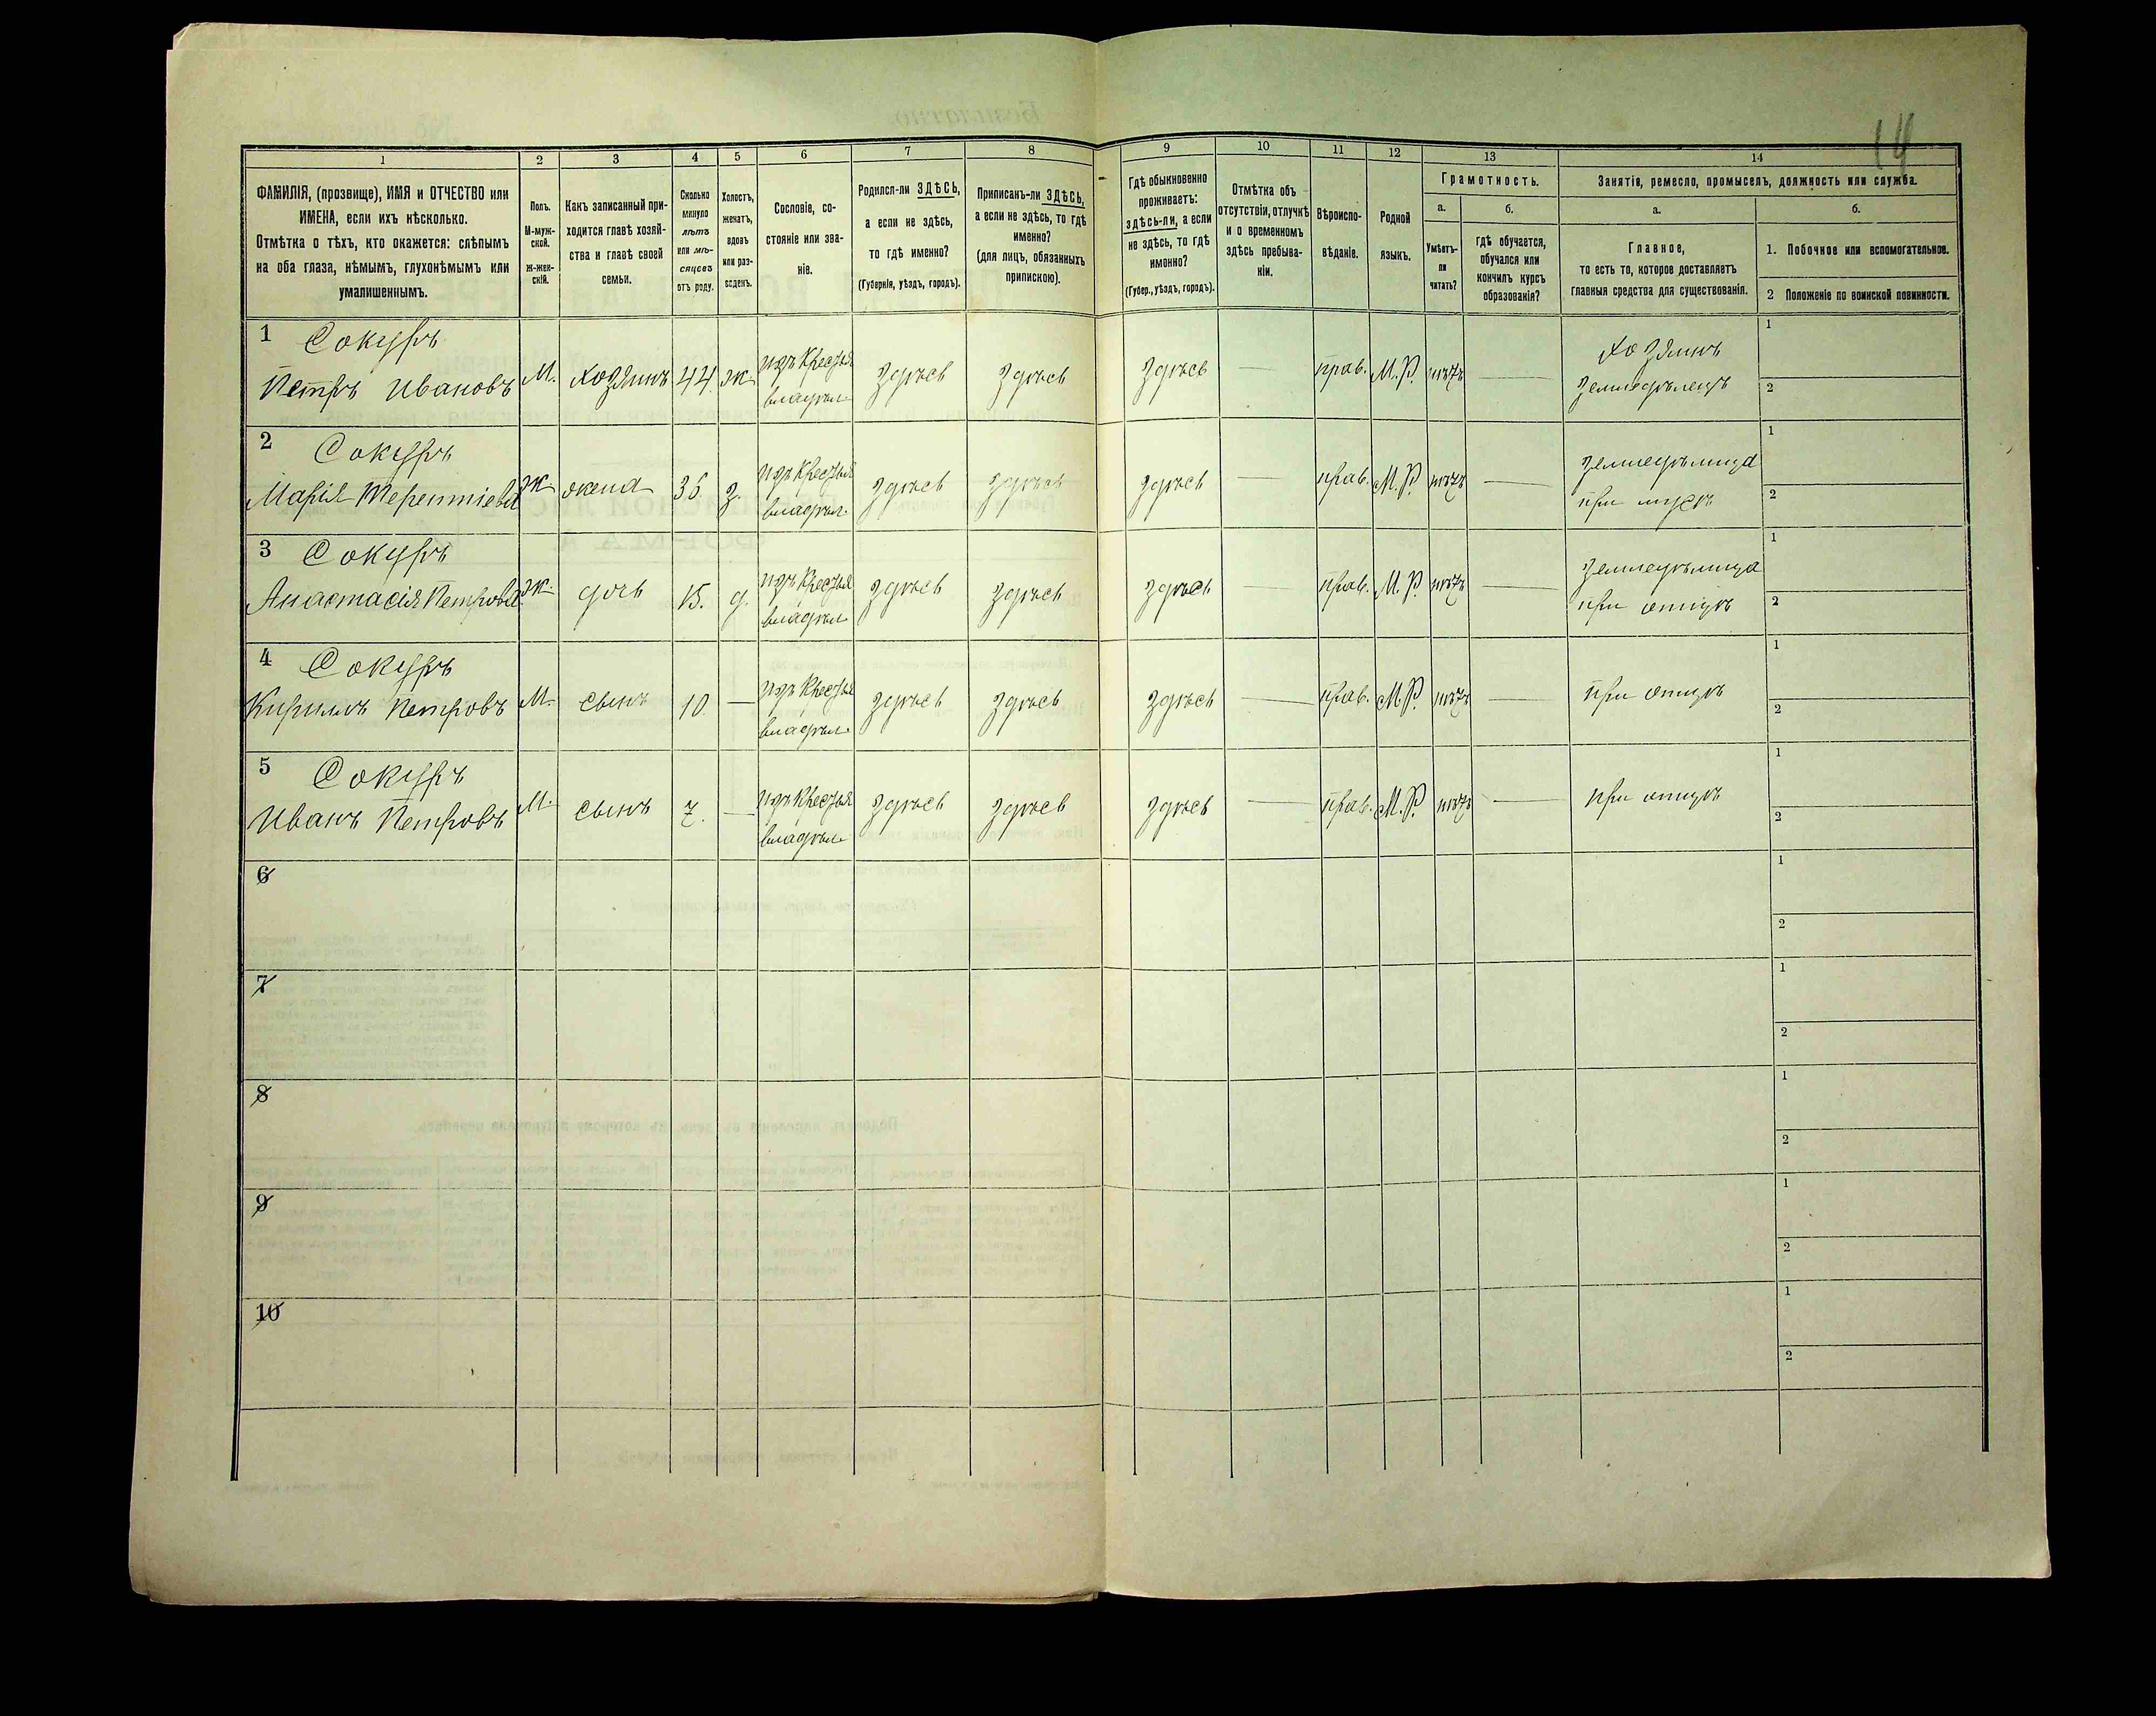 14
1 2 3 4 5 6 7 8 9 10 11 12 13 14
ФАМИЛІЯ, (прозвище), ИМЯ и ОТЧЕСТВО или
ИМЕНА, если ихъ нѣсколько.
Отмѣтка о тѣхъ, кто окажется: слѣпымъ
на оба глаза, нѣмымъ, глухонѣмымъ или
умалишеннымъ.
Полъ.
М-муж-
ской.
Ж-жен-
скій.
Какъ записанный при-
ходится главѣ хозяй-
ства и главѣ своей
семьи.
Сколько
минуло
лѣтъ
или мѣ-
сяцевъ
отъ роду.
Холостъ,
женатъ,
вдовъ
или раз-
веденъ.
Сословіе, со-
стояніе или зва-
ніе.
Родился-ли ЗДѢСЬ,
а если не здѣсь,
то гдѣ именно?
(Губернія, уѣздъ, городъ).
Приписанъ-ли ЗДѢСЬ,
а если не здѣсь, то гдѣ
именно?
(для лицъ, обязанныхъ
припискою).
Гдѣ обыкновенно
проживаетъ:
здѣсь-ли, а если
не здѣсь, то гдѣ
именно?
(Губер., уѣздъ, городъ).
Отмѣтка объ
отсутствіи, отлучкѣ
и о временномъ
здѣсь пребыва-
ніи.
Вѣроиспо-
вѣданіе.
Родной
языкъ.
Грамотность.
а.
Умѣетъ-
ли
читать?
б.
гдѣ обучается,
обучался или
кончилъ курсъ
образованія?
Занятіе, ремесло, промыселъ, должность или служба.
а.
Главное,
то есть то, которое доставляетъ
главныя средства для существованія.
б.
1. Побочное или вспомогательное.
2 Положеніе по воинской повинности.
1 Сокуръ 1
Петръ Ивановъ М. Хозяинъ 44. ж. изъ крестья владѣл. здѣсь здѣсь здѣсь — прав. М.Р. нѣтъ — Хозяинъ земледѣлецъ 2
2 Сокуръ 1
Марія Терентіева ж. жена 36 з. изъ крестья владѣл. здѣсь здѣсь здѣсь — прав. М.Р. нѣтъ — земледѣлица при мужѣ 2
3 Сокуръ 1
Анастасія Петрова ж. дочь 15. д. изъ крестья владѣл. здѣсь здѣсь здѣсь — прав. М.Р. нѣтъ — земледѣлица при отцѣ 2
4 Сокуръ 1
Кириллъ Петровъ М. сынъ 10. — изъ крестья владѣл. здѣсь здѣсь здѣсь — прав. М.Р. нѣтъ — при отцѣ 2
5 Сокуръ 1
Иванъ Петровъ М. сынъ 7. — изъ крестья владѣл. здѣсь здѣсь здѣсь — прав. М.Р. нѣтъ — при отцѣ 2
6 1
2
7 1
2
8 1
2
9 1
2
10 1
2